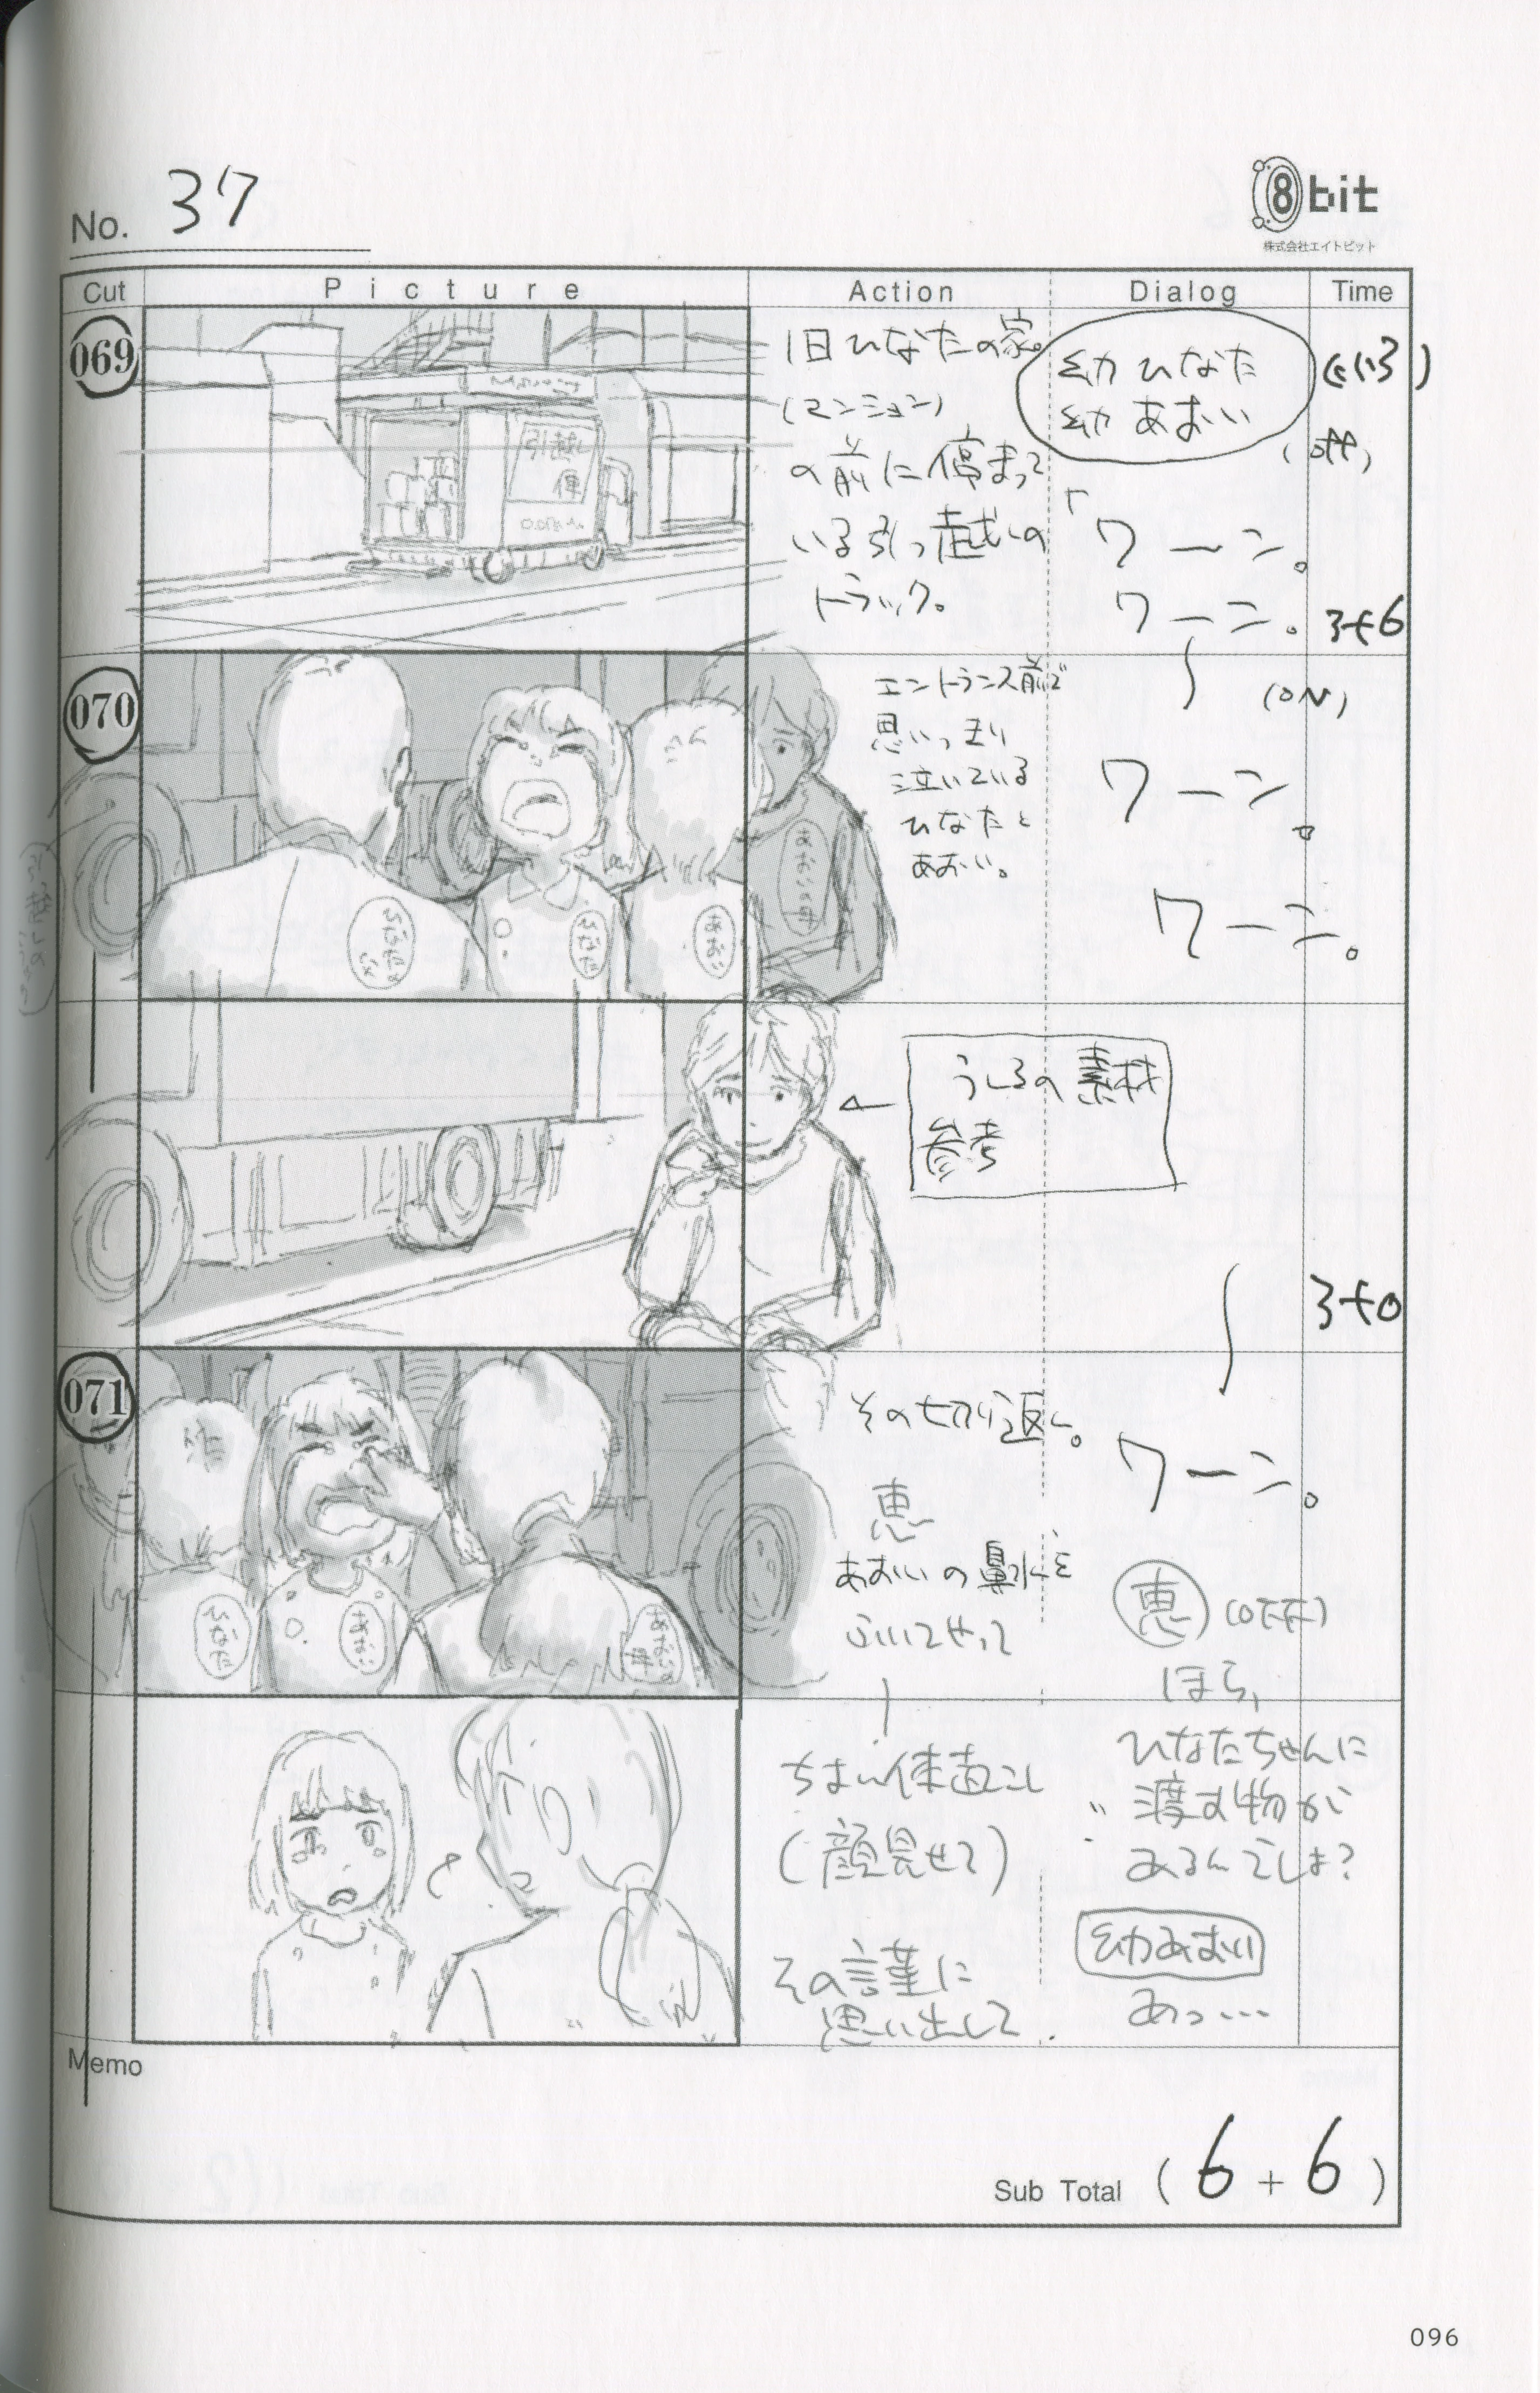 No. 37
8bit
株式会社エイトビット
Cut
Picture
Action
Dialog
Time
069
引越し
便
旧ひなたの家。
(マンション)
の前に停まって
いる引っ越しの
トラック。
幼ひなた
幼あおい
(off)
「ワーン。
ワーン。
3+6
070
ひなた
あおい
エントランス前で
思いっきり
泣いている
ひなたと
あおい。
(ON)
ワーン。
ワーン。
うしろの素材
参考
3+0
071
ひなた
あおい
その切り返し。
恵
あおいの鼻水を
ふいてやって
ワーン。
恵 (OFF)
ほら、
ちょい体起こし
(顔見せて)
その言葉に
思い出して
ひなたちゃんに
渡す物が
あるんでしょ?
幼あおい
あっ…
Memo
Sub Total (6+6)
096